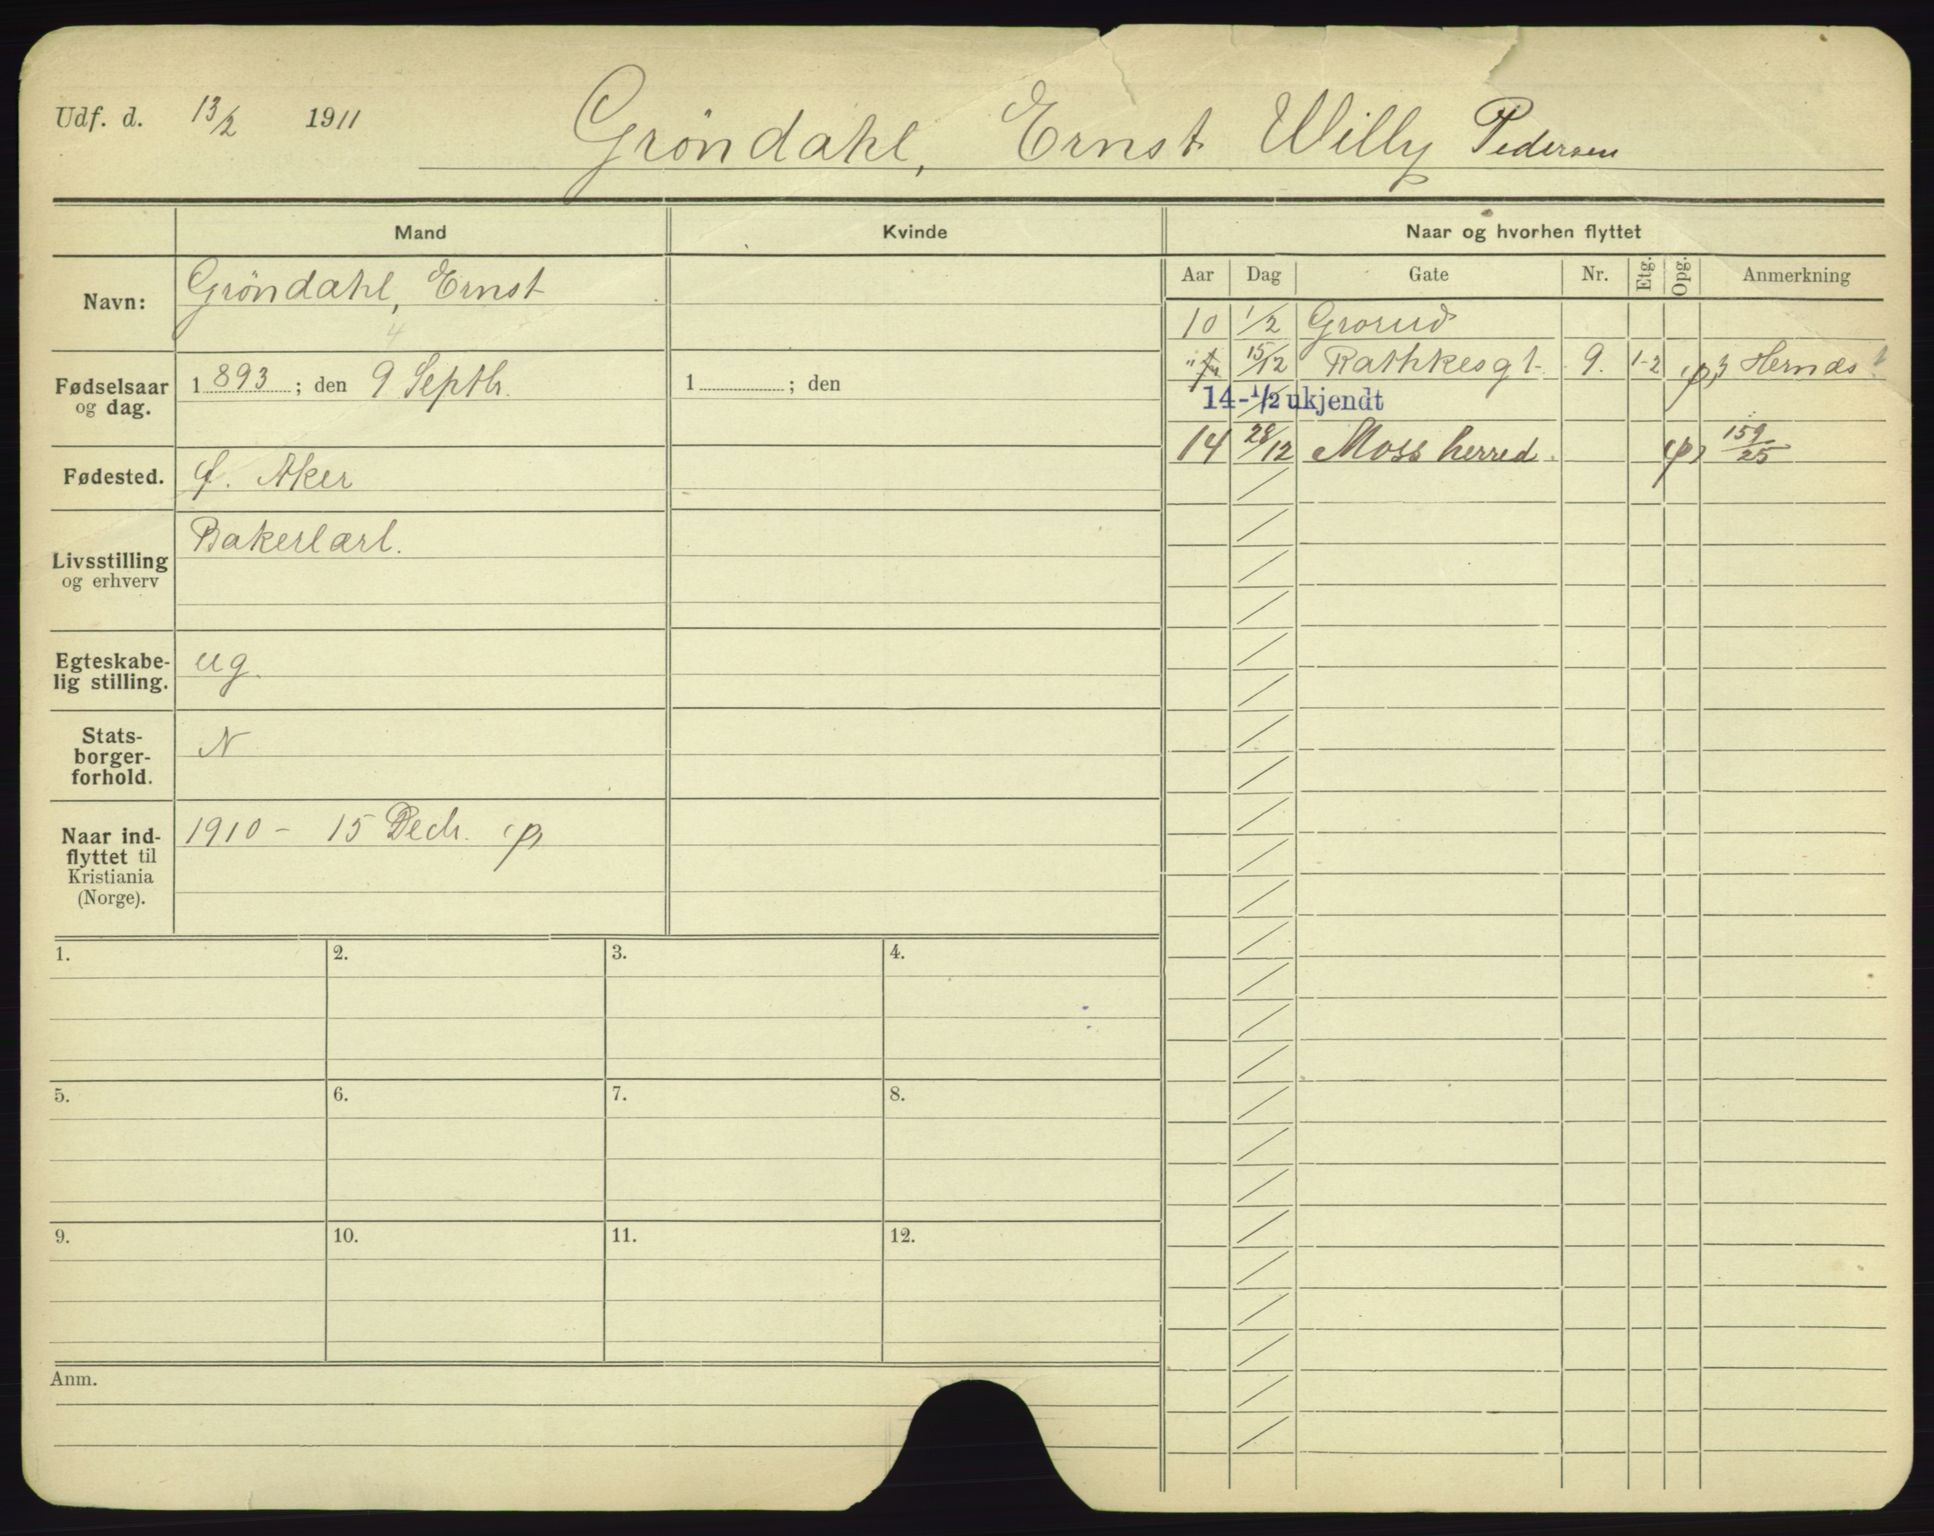 Udf. d. 13/2 1911
Gröndahl, Ernst Willy Pedersen
Mand Kvinde Naar og hvorhen flyttet
Aar Dag Gate Nr. Etg. Opg. Anmerkning
Navn: Gröndahl, Ernst
Fødselsaar og dag. 1893; den 9 Septb. 1 ; den
Fødested. f. Aker
Livsstilling og erhverv Bakerlærl.
Egteskabe-
lig stilling. ug.
Stats-
borger-
forhold. N
Naar ind-
flyttet til
Kristiania
(Norge). 1910 - 15 Decb.
10 1/2 Grorud
" 15/12 Rathkesgt. 9. 1-2 Hernæs
14-1/2 ukjendt
14 28/12 Moss herred. 159/25
1. 2. 3. 4.
5. 6. 7. 8.
9. 10. 11. 12.
Anm.